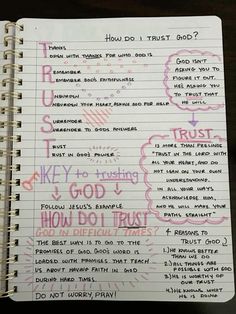 HOW DO I TRUST GOD?
THANKS
OPEN WITH THANKS FOR WHO GOD IS
REMEMBER
REMEMBER GOD'S FAITHFULNESS
UNBURDEN
UNBURDEN YOUR HEART, ASKING GOD FOR HELP
SURRENDER
SURRENDER TO GOD'S ANSWERS
TRUST
TRUST IN GOD'S POWER
GOD ISN'T
ASKING YOU TO
FIGURE IT OUT.
HE'S ASKING YOU
TO TRUST THAT
HE WILL
TRUST
IS MORE THAN FEELINGS
TRUST IN THE LORD WITH
ALL YOUR HEART, AND DO
NOT LEAN ON YOUR OWN
UNDERSTANDING.
IN ALL YOUR WAYS
ACKNOWLEDGE HIM,
AND HE WILL MAKE YOUR
PATHS STRAIGHT"
KEY to trusting
GOD
FOLLOW JESUS'S EXAMPLE
HOW DO I TRUST
GOD IN DIFFICULT TIMES?
THE BEST WAY IS TO GO TO THE
PROMISES OF GOD. GOD'S WORD IS
LOADED WITH PROMISES THAT TEACH
US ABOUT HAVING FAITH IN GOD
DURING HARD TIMES.
DO NOT WORRY, PRAY!
4 REASONS TO
TRUST GOD
1) HE KNOWS BETTER
THAN WE DO
2) ALL THINGS ARE
POSSIBLE WITH GOD
3) HE IS WORTHY OF
OUR TRUST
4) HE KNOWS WHAT
HE IS DOING